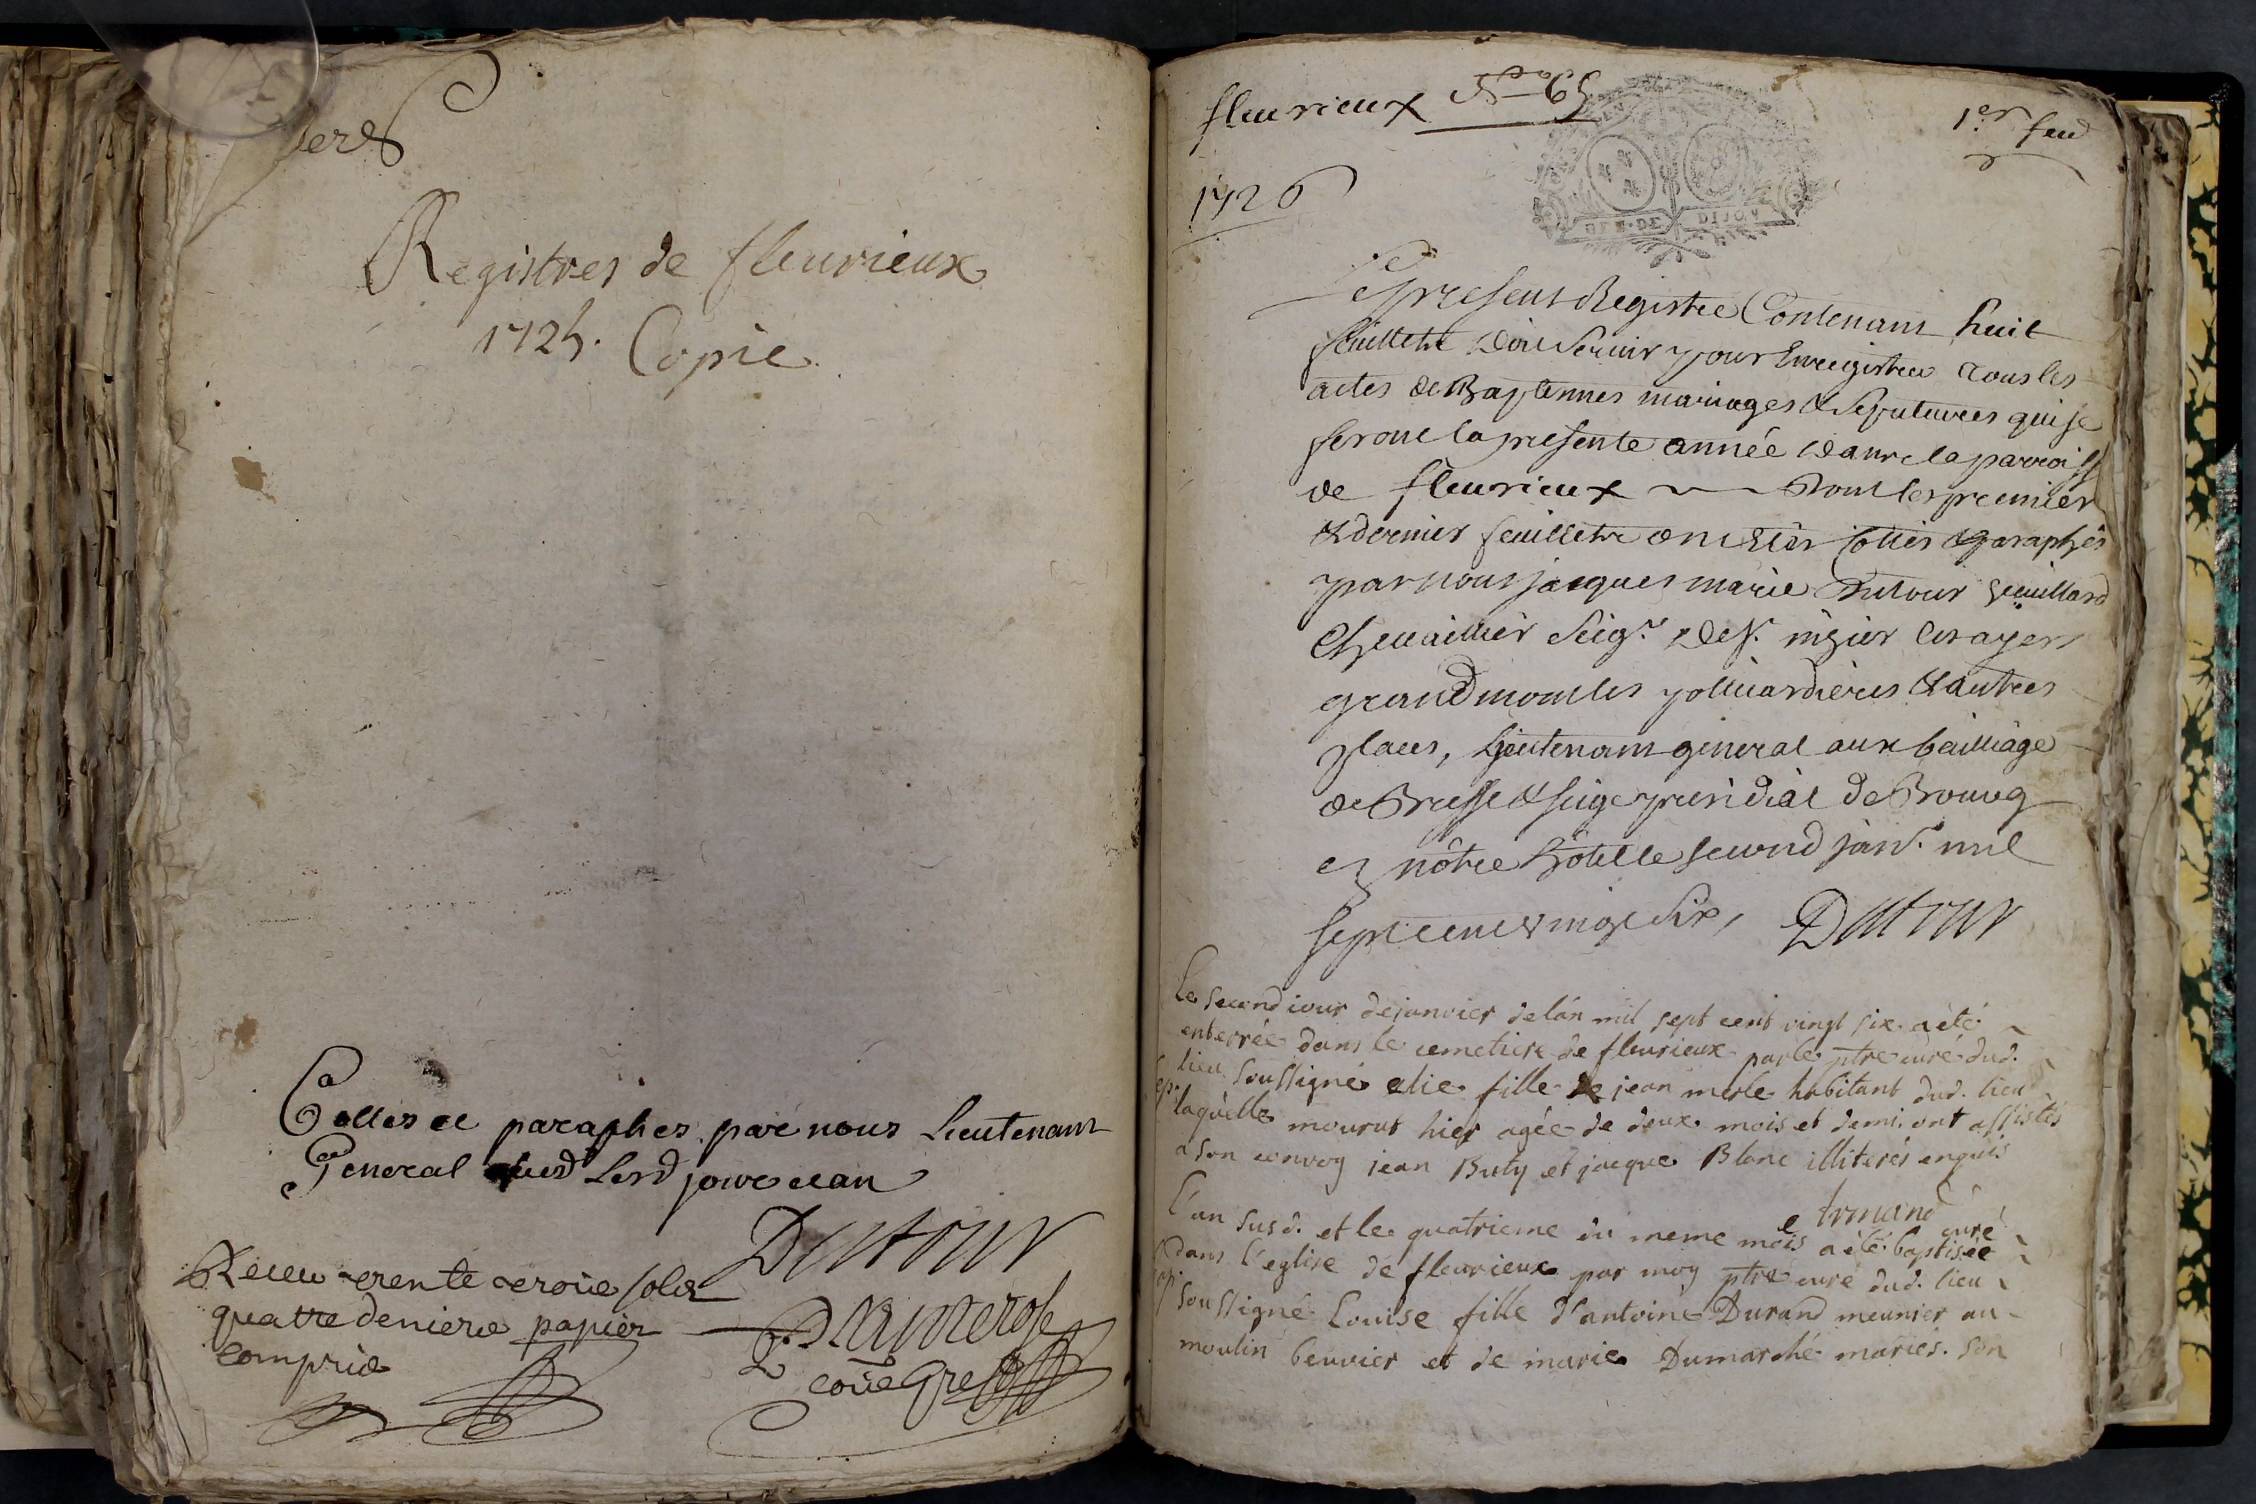 Registres de fleurieux
1725. Copie.
Cottés et paraphes par nous Lieutenant
General
Dutour
Receu trente trois solz
quatre deniers papier
compris
fleurieux No 65
1er feul
1726
GEN. DE DIJON
Le present Registre Contenant huit
feuillets doit servir pour Enregistrer tous les
actes de Baptemes mariages & Sepultures qui se
feront la presente année dans la parroisse
de fleurieux Dont les premier
& dernier feuillets ont étés Cottés & paraphés
par nous jacques marie Dutour Vuillard
Chevallier Seigr. de St. nizier
grandmont les & autres
places, Lieutenant general aux bailliage
de Bresse & siege presidial de Bourg
en nôtre hôtel le second janv. mil
sept cent vingt six, Dutour
Le second iour de janvier de l'an mil sept cent vingt six a été
enterrée dans le cemetiere de fleurieux par le ptre curé dud.
lieu soussigné elie fille de jean merle habitant dud. lieu
sep. laquelle mourut hier agée de deux mois et demi. ont assistés
a son convoy jean Buty et jacque Blanc illiterés enquis
curé
L'an susd. et le quatrieme du meme mois a été baptisée
dans l'eglise de fleurieux par moy ptre curé dud. lieu
soussigné Louise fille d'antoine Durand meunier au
moulin bevvier et de marie Dumarché mariés. son